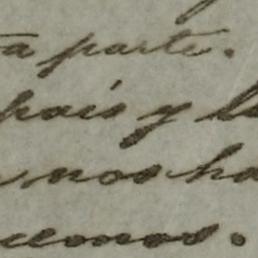 ta parte.
pais y l
nos ha
uenos.